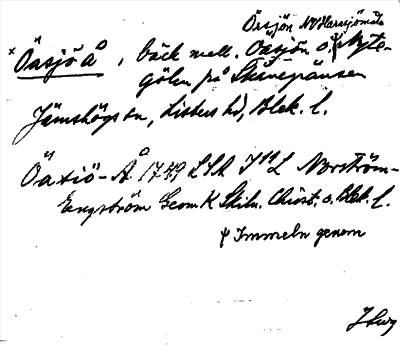 Örsjön NV Harasjömåla
× Öasjö å, bäck mell. Öasjön o. ψ Nyte-
gölen på Skånegränsen
Jämshögs sn, Listers hd, Blek. l.
Öasiö-Å 1749 LSA J11 L Norström-
Engström Geom K Skiln. Christ. o. Blek. l.
ψ Immeln genom